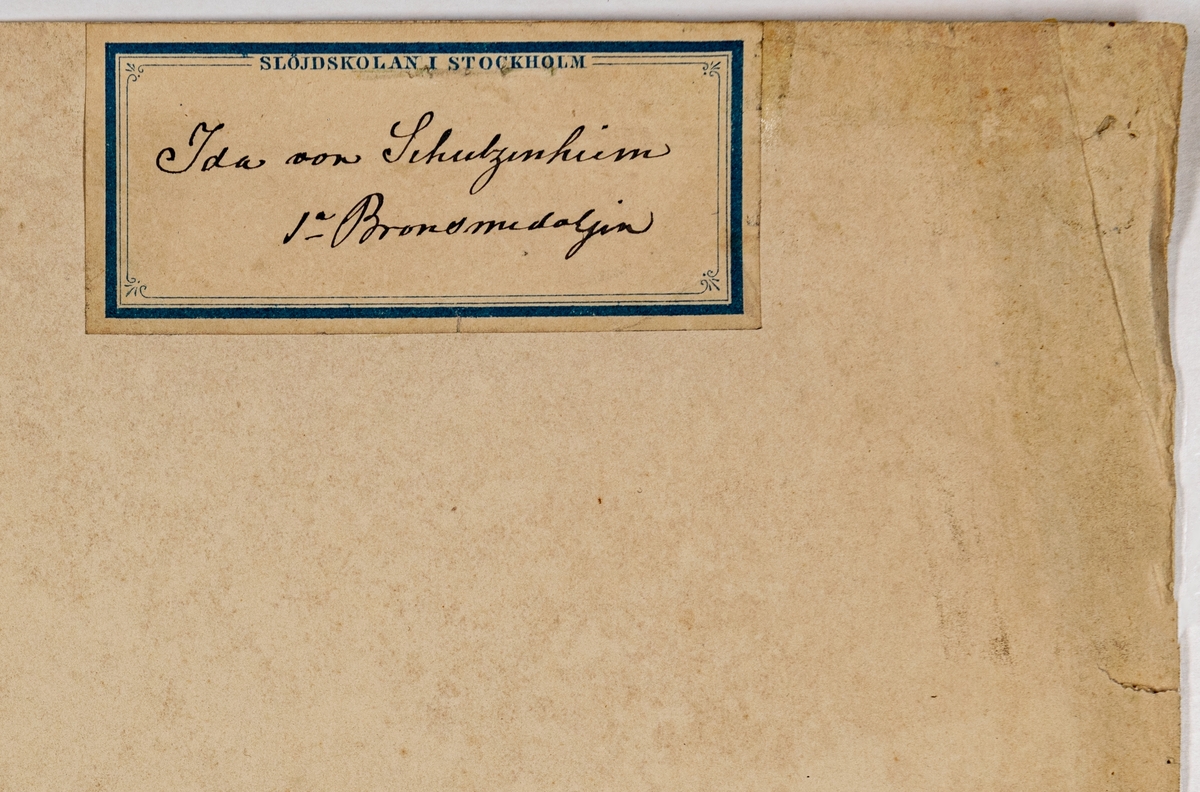 SLÖJDSKOLAN I STOCKHOLM
Ida von Schulzenheim
1a Bronsmedaljen